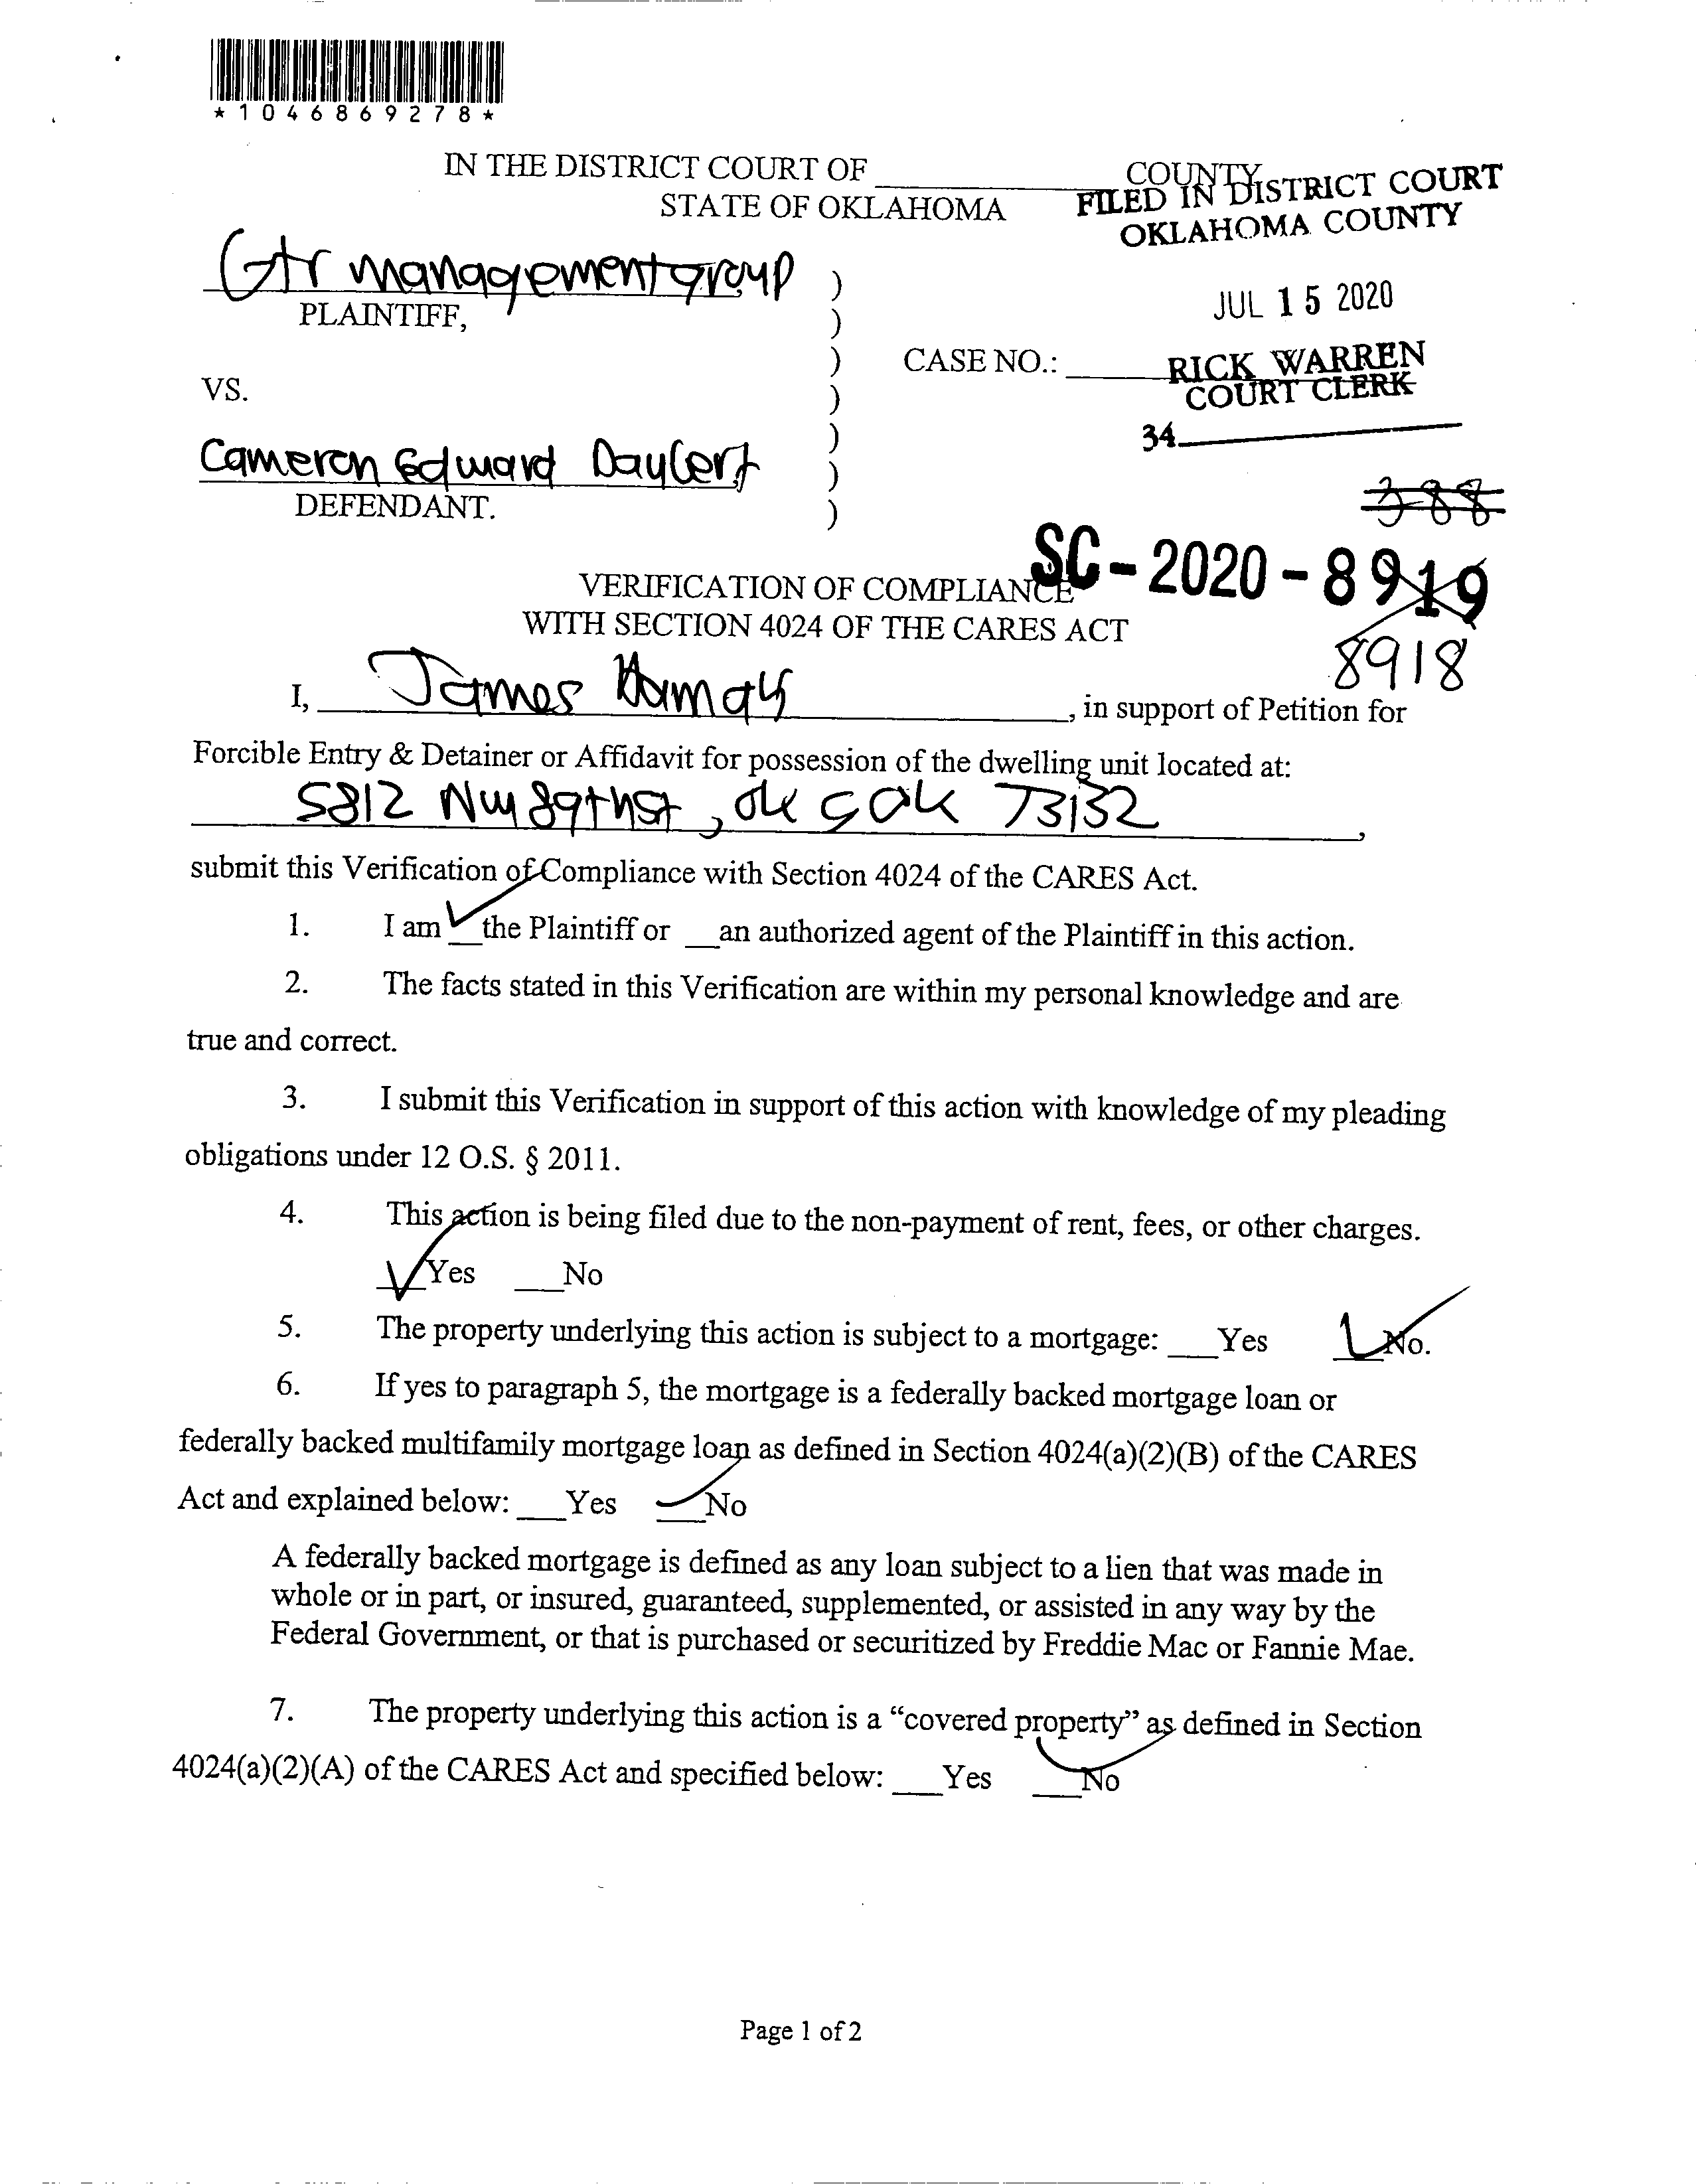 *1046869278*
IN THE DISTRICT COURT OF ___ COUNTY
STATE OF OKLAHOMA
FILED IN DISTRICT COURT
OKLAHOMA COUNTY
Gtr management group
PLAINTIFF,
JUL 15 2020
CASE NO.: ___
RICK WARREN
COURT CLERK
VS.
34
Cameron Edward
DEFENDANT.
388
SC-2020-8919
8918
VERIFICATION OF COMPLIANCE
WITH SECTION 4024 OF THE CARES ACT
I, James, in support of Petition for
Forcible Entry & Detainer or Affidavit for possession of the dwelling unit located at:
5812 NW 89th St, OKC OK 73132,
submit this Verification of Compliance with Section 4024 of the CARES Act.
1. I am ✓ the Plaintiff or __an authorized agent of the Plaintiff in this action.
2. The facts stated in this Verification are within my personal knowledge and are
true and correct.
3. I submit this Verification in support of this action with knowledge of my pleading
obligations under 12 O.S. § 2011.
4. This action is being filed due to the non-payment of rent, fees, or other charges.
✓ Yes ___No
5. The property underlying this action is subject to a mortgage: ___Yes ✓ No.
6. If yes to paragraph 5, the mortgage is a federally backed mortgage loan or
federally backed multifamily mortgage loan as defined in Section 4024(a)(2)(B) of the CARES
Act and explained below: ___Yes ✓ No
A federally backed mortgage is defined as any loan subject to a lien that was made in
whole or in part, or insured, guaranteed, supplemented, or assisted in any way by the
Federal Government, or that is purchased or securitized by Freddie Mac or Fannie Mae.
7. The property underlying this action is a “covered property” as defined in Section
4024(a)(2)(A) of the CARES Act and specified below: ___Yes ✓ No
Page 1 of 2